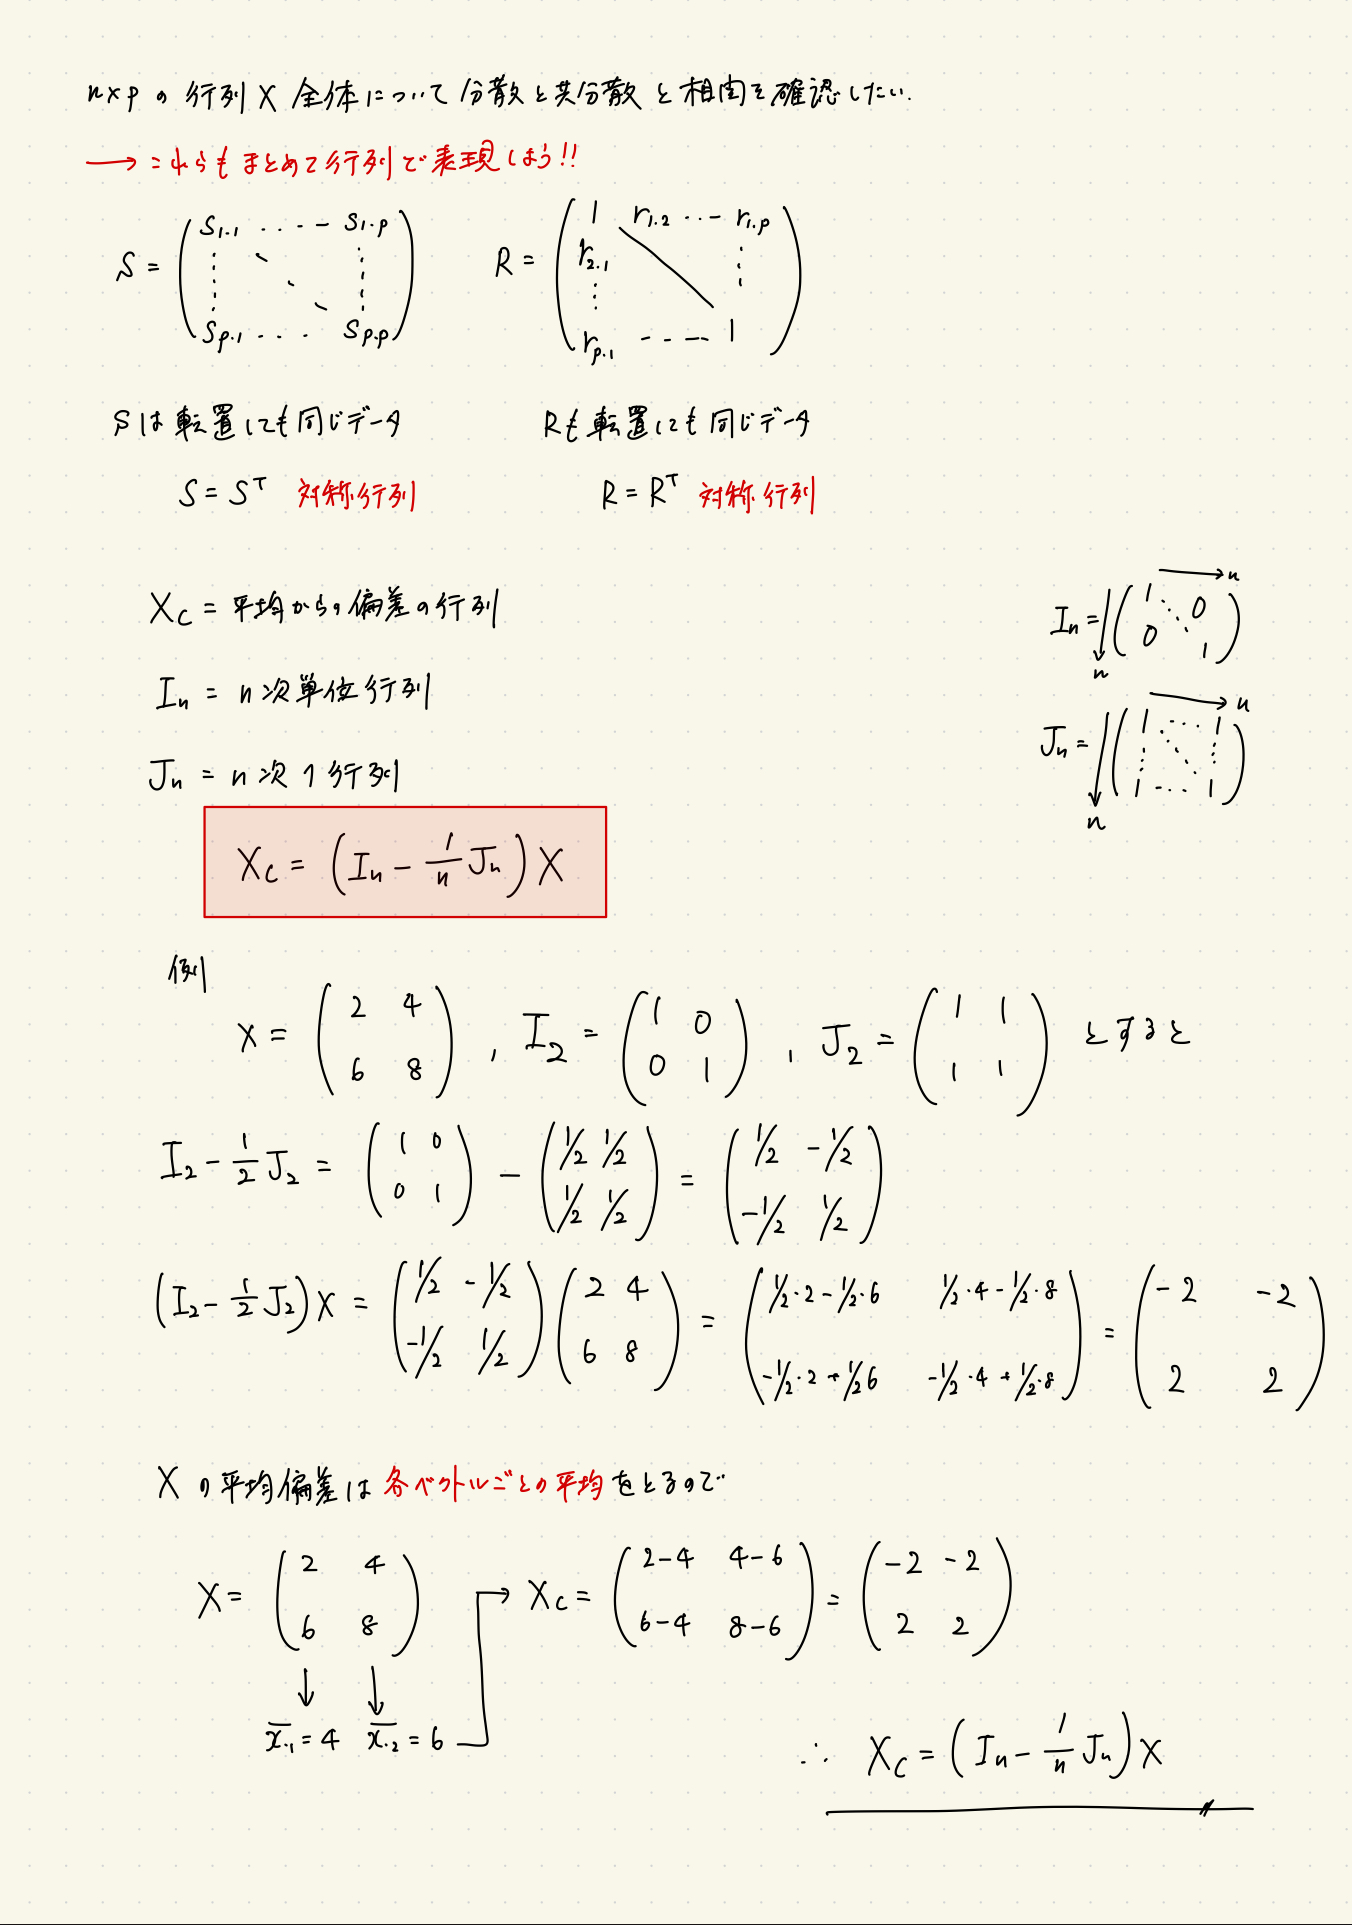 n×p の 行列 X 全体について 分散と共分散 と 相関を確認したい.
→ これらも まとめて行列で表現しよう!!
S = (s₁.₁ .... s₁.p ⋮ ⋱ ⋮ sp.₁ .... sp.p)   R = (1 r₁.₂ ... r₁.p r₂.₁ ⋮ ⋮ rp.₁ ---- 1)
Sは転置しても同じデータ   Rも転置しても同じデータ
S = Sᵀ 対称行列   R = Rᵀ 対称行列
Xc = 平均からの偏差の行列
Iₙ = (1 ⋱ 0 0 1) n n
Iₙ = n次単位行列
Jₙ = (1 ... 1 ⋮ ⋱ ⋮ 1 ... 1) n n
Jₙ = n次 1行列
Xc = (Iₙ - 1/n Jₙ) X
例
X = (2 4 6 8) , I₂ = (1 0 0 1) , J₂ = (1 1 1 1) とすると
I₂ - 1/2 J₂ = (1 0 0 1) - (1/2 1/2 1/2 1/2) = (1/2 -1/2 -1/2 1/2)
(I₂ - 1/2 J₂) X = (1/2 -1/2 -1/2 1/2) (2 4 6 8) = (1/2·2 - 1/2·6 1/2·4 - 1/2·8 -1/2·2 + 1/2 6 -1/2·4 + 1/2·8) = (-2 -2 2 2)
X の平均偏差は 各ベクトルごとの平均 をとるので
X = (2 4 6 8) → Xc = (2-4 4-6 6-4 8-6) = (-2 -2 2 2)
↓ ↓
x̄.₁ = 4 x̄.₂ = 6
∴ Xc = (Iₙ - 1/n Jₙ) X